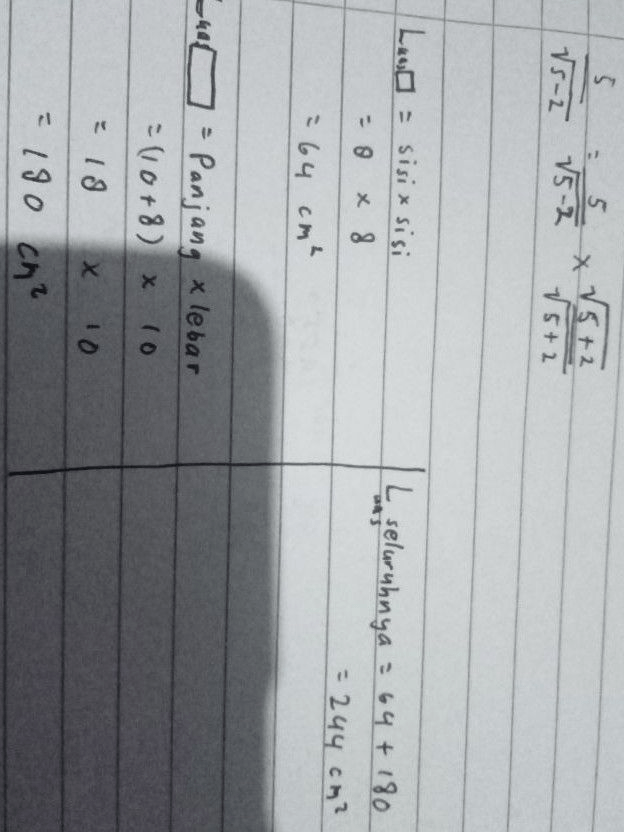 5/√5-2 = 5/√5-2 × √5+2/√5+2
Luas □ = sisi × sisi
= 8 × 8
= 64 cm²
Luas ▭ = Panjang × lebar
= (10+8) × 10
= 18 × 10
= 180 cm²
Luas seluruhnya = 64 + 180
= 244 cm²